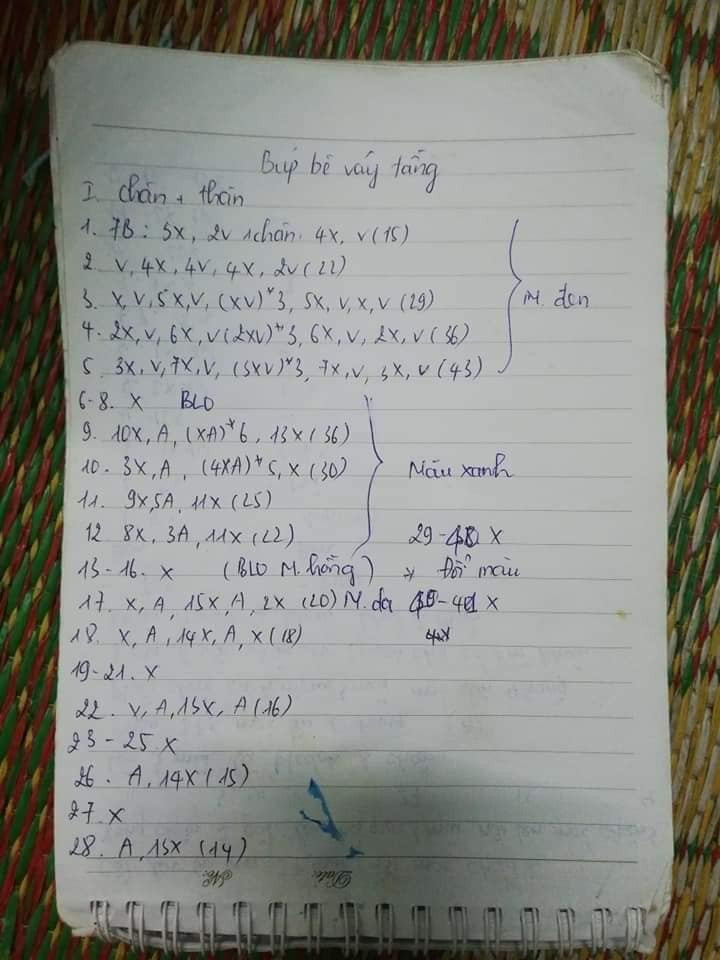 Búp bê váy tầng
I. chân + thân
1. 7B : 5x, 2v 1chân. 4x, v (15)
2. v, 4x, 4v, 4x, 2v (22)
3. x, v, 5x, v, (xv)*3, 5x, v, x, v (29)
4. 2x, v, 6x, v (2xv)*3, 6x, v, 2x, v (36)
M. đen
5. 3x, v, 7x, v, (3xv)*3, 7x, v, 3x, v (43)
6-8. x BLO
9. 10x, A, (xA)*6, 13x (36)
10. 3x, A, (4xA)*5, x (30)
Màu xanh
11. 9x, 5A, 11x (25)
12 8x, 3A, 11x (22) 29- x
13-16. x (BLO M. hồng) * Đổi màu
17. x, A, 15x, A, 2x (20) M. da -40 x
18. x, A, 14x, A, x (18)
19-21. x
22. v, A, 13x, A (16)
23-25. x
26. A, 14x (15)
27. x
28. A, 13x (14)
No:
Date: